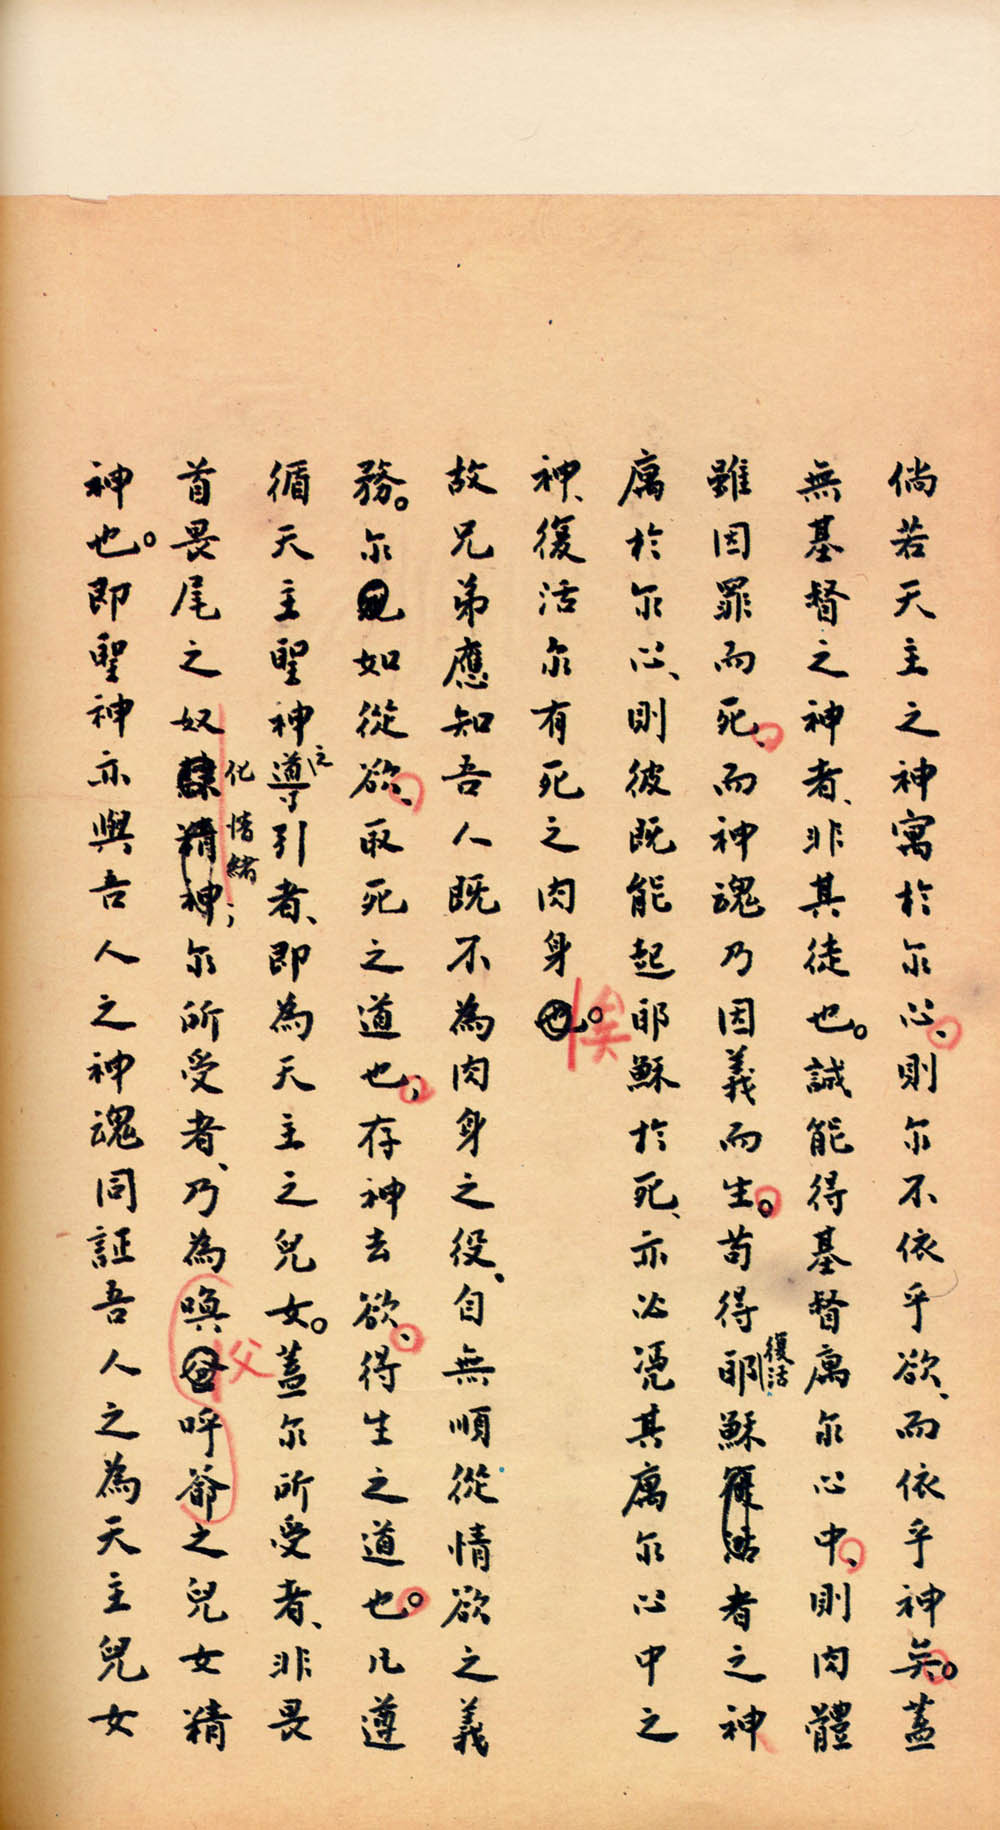 倘若天主之神寓於尔心、則尔不依乎欲、而依乎神矣。蓋
無基督之神者、非其徒也。誠能得基督寓尔心中、則肉體
雖因罪而死、而神魂乃因義而生。苟得耶穌復活者之神
復活
寓於尔心、則彼既能起耶穌於死、亦必憑其寓尔心中之
神、復活尔有死之肉身也。
矣
故兄弟應知吾人既不為肉身之役、自無順從情欲之義
務。尔如從欲、取死之道也；存神去欲、得生之道也。凡遵
循天主聖神導引者、即為天主之兒女。蓋尔所受者、非畏
之
首畏尾之奴隸精神；尔所受者、乃為喚呼爺之兒女精
化情緒
父
神也。即聖神亦與吾人之神魂同証吾人之為天主兒女